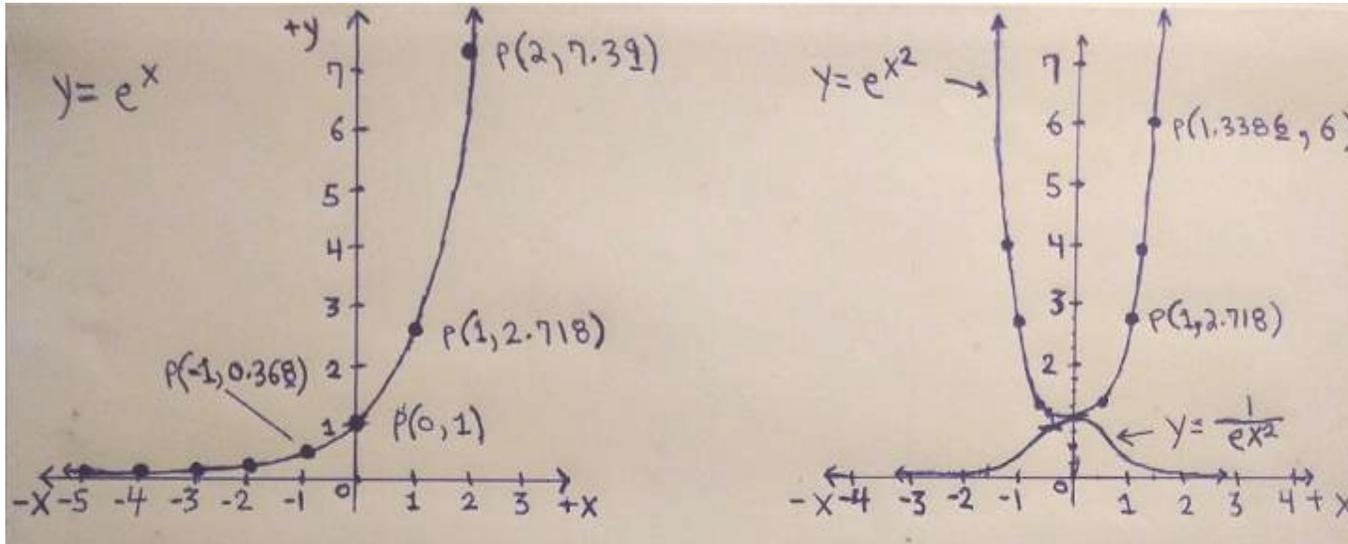 y = e^x
+y
7
6
5
4
3
2
1
P(2, 7.39)
P(1, 2.718)
P(-1, 0.368)
P(0, 1)
-x -5 -4 -3 -2 -1 0 1 2 3 +x
y = e^x²
7
6
5
4
3
2
P(1.3386, 6)
P(1, 2.718)
y = 1/e^x²
-x -4 -3 -2 -1 0 1 2 3 4 + x